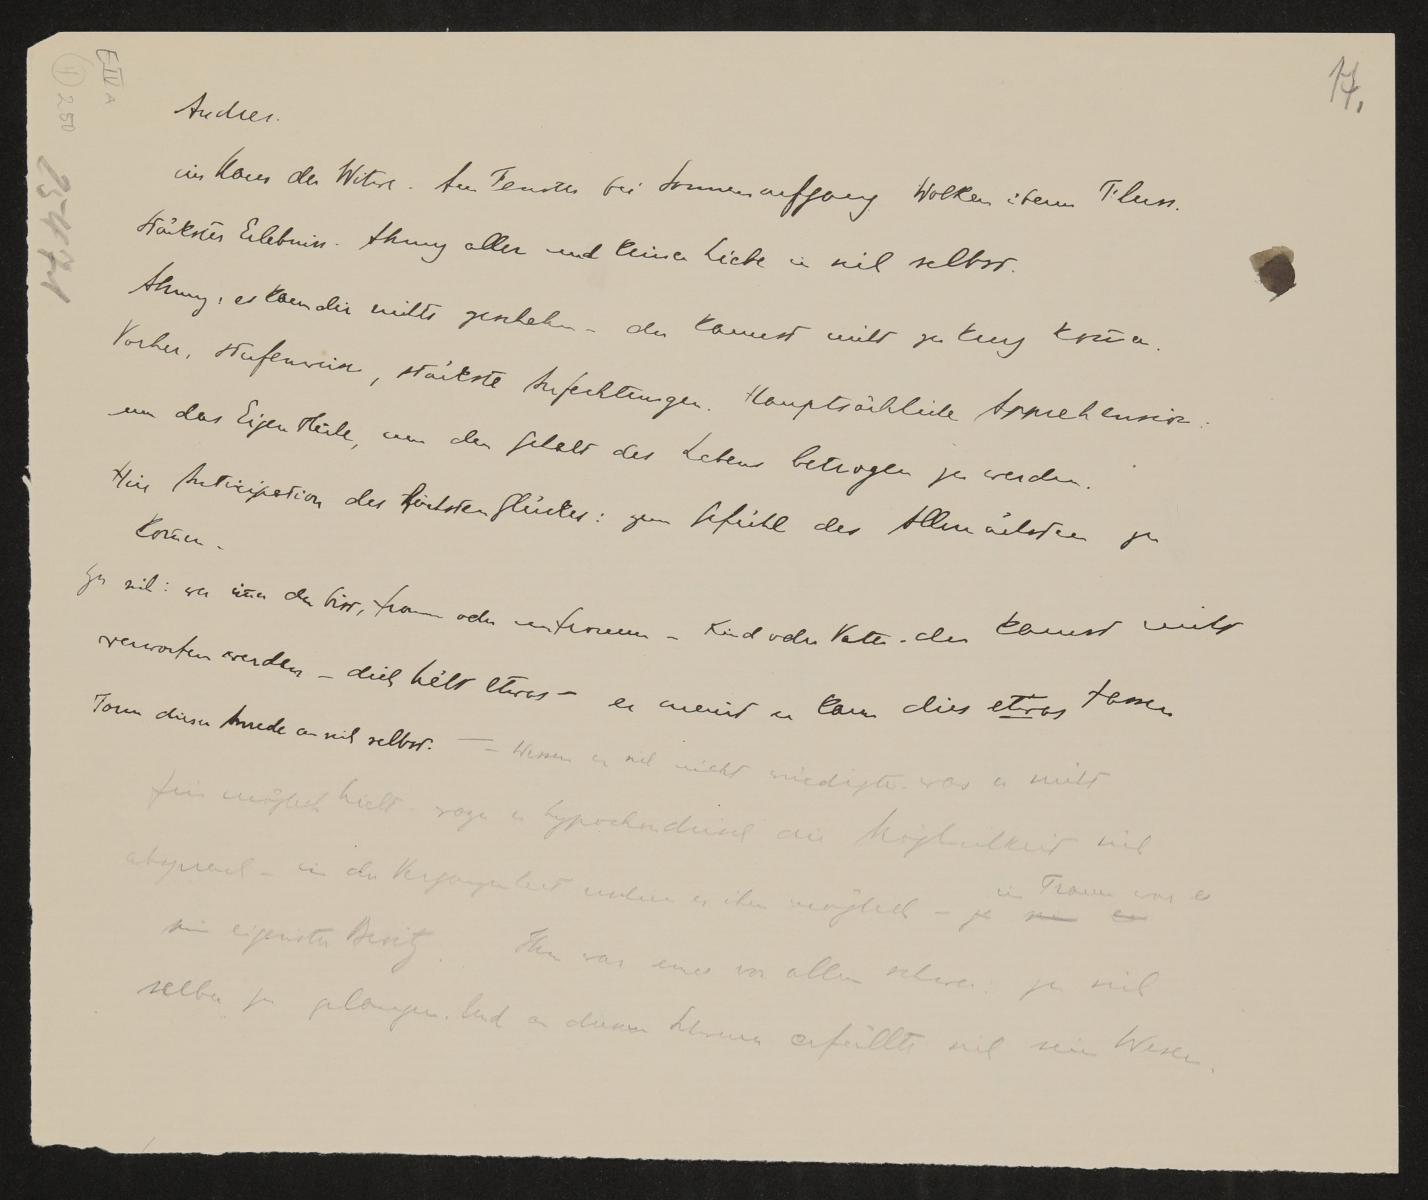 E IV A
4
250
25471
17.
Andres.
im Haus der Witwe. Am Fenster bei Sonnenaufgang Wolken überm Fluss.
Stärkstes Erlebniss. Ahnung aller und keiner Liebe in sich selbst.
Ahnung: es kann dir nichts geschehen – du kannst nicht zu kurz kom̄en.
Vorher, stufenweise, stärkste Anfechtungen. Hauptsächliche Apprehension:
um das Eigentliche, um den Gehalt des Lebens betrogen zu werden.
Hier Anticipation des höchsten Glückes: zum Gefühl des Allernächsten zu
kom̄en.
Zu sich: wer im̄er du bist, fromm oder unfromm – Kind oder Vater – du kannst nicht
verworfen werden – dich hält etwas – er meint er kann dies etwas fassen
Form dieser Anrede an sich selbst. — – Wessen er sich nicht würdigte. was er nicht
für möglich hielt – wozu er hypochondrisch die Möglichkeit sich
absprach – in der Vergangenheit schien es ihm möglich – ja
im Traum war es
sein eigenster Besitz. Ihm war eines vor allem schwer: zu sich
selber zu gelangen. Und an diesem Schweren erfüllte sich sein Wesen.